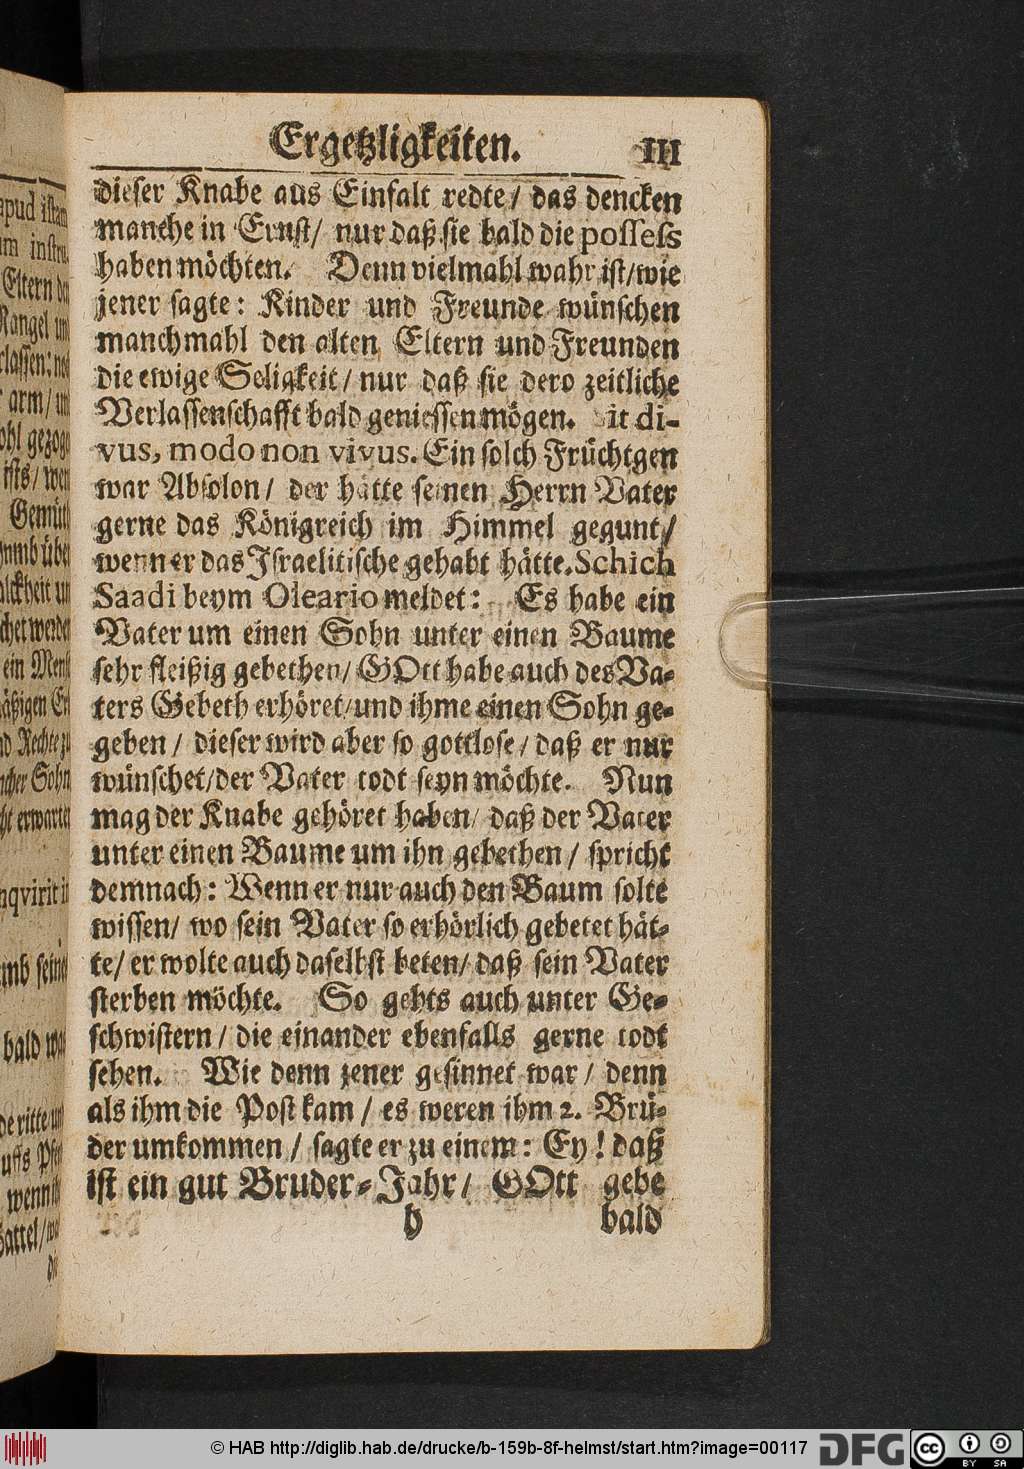 Ergetzligkeiten. 111
dieser Knabe aus Einfalt redte / das dencken
manche in Ernst / nur daß sie bald die possess
haben möchten. Denn vielmahl wahr ist / wie
jener sagte: Kinder und Freunde wünschen
manchmahl den alten Eltern und Freunden
die ewige Seligkeit / nur daß sie dero zeitliche
Verlassenschafft bald geniessen mögen. it di-
vus, modo non vivus. Ein solch Früchtgen
war Absolon / der hätte seinen Herrn Vater
gerne das Königreich im Himmel gegunt /
wenn er das Israelitische gehabt hätte. Schich
Saadi beym Oleario meldet: Es habe ein
Vater um einen Sohn unter einen Baume
sehr fleißig gebethen / GOtt habe auch des Va-
ters Gebeth erhöret / und ihme einen Sohn ge-
geben / dieser wird aber so gottlose / daß er nur
wünschet / der Vater todt seyn möchte. Nun
mag der Knabe gehöret haben / daß der Vater
unter einen Baume um ihn gebethen / spricht
demnach: Wenn er nur auch den Baum solte
wissen / wo sein Vater so erhörlich gebetet hät-
te / er wolte auch daselbst beten / daß sein Vater
sterben möchte. So gehts auch unter Ge-
schwistern / die einander ebenfalls gerne todt
sehen. Wie denn jener gesinnet war / denn
als ihm die Post kam / es weren ihm 2. Brü-
der umkommen / sagte er zu einem: Ey! daß
ist ein gut Bruder-Jahr / GOtt gebe
h bald
© HAB http://diglib.hab.de/drucke/b-159b-8f-helmst/start.htm?image=00117
DFG
cc BY SA